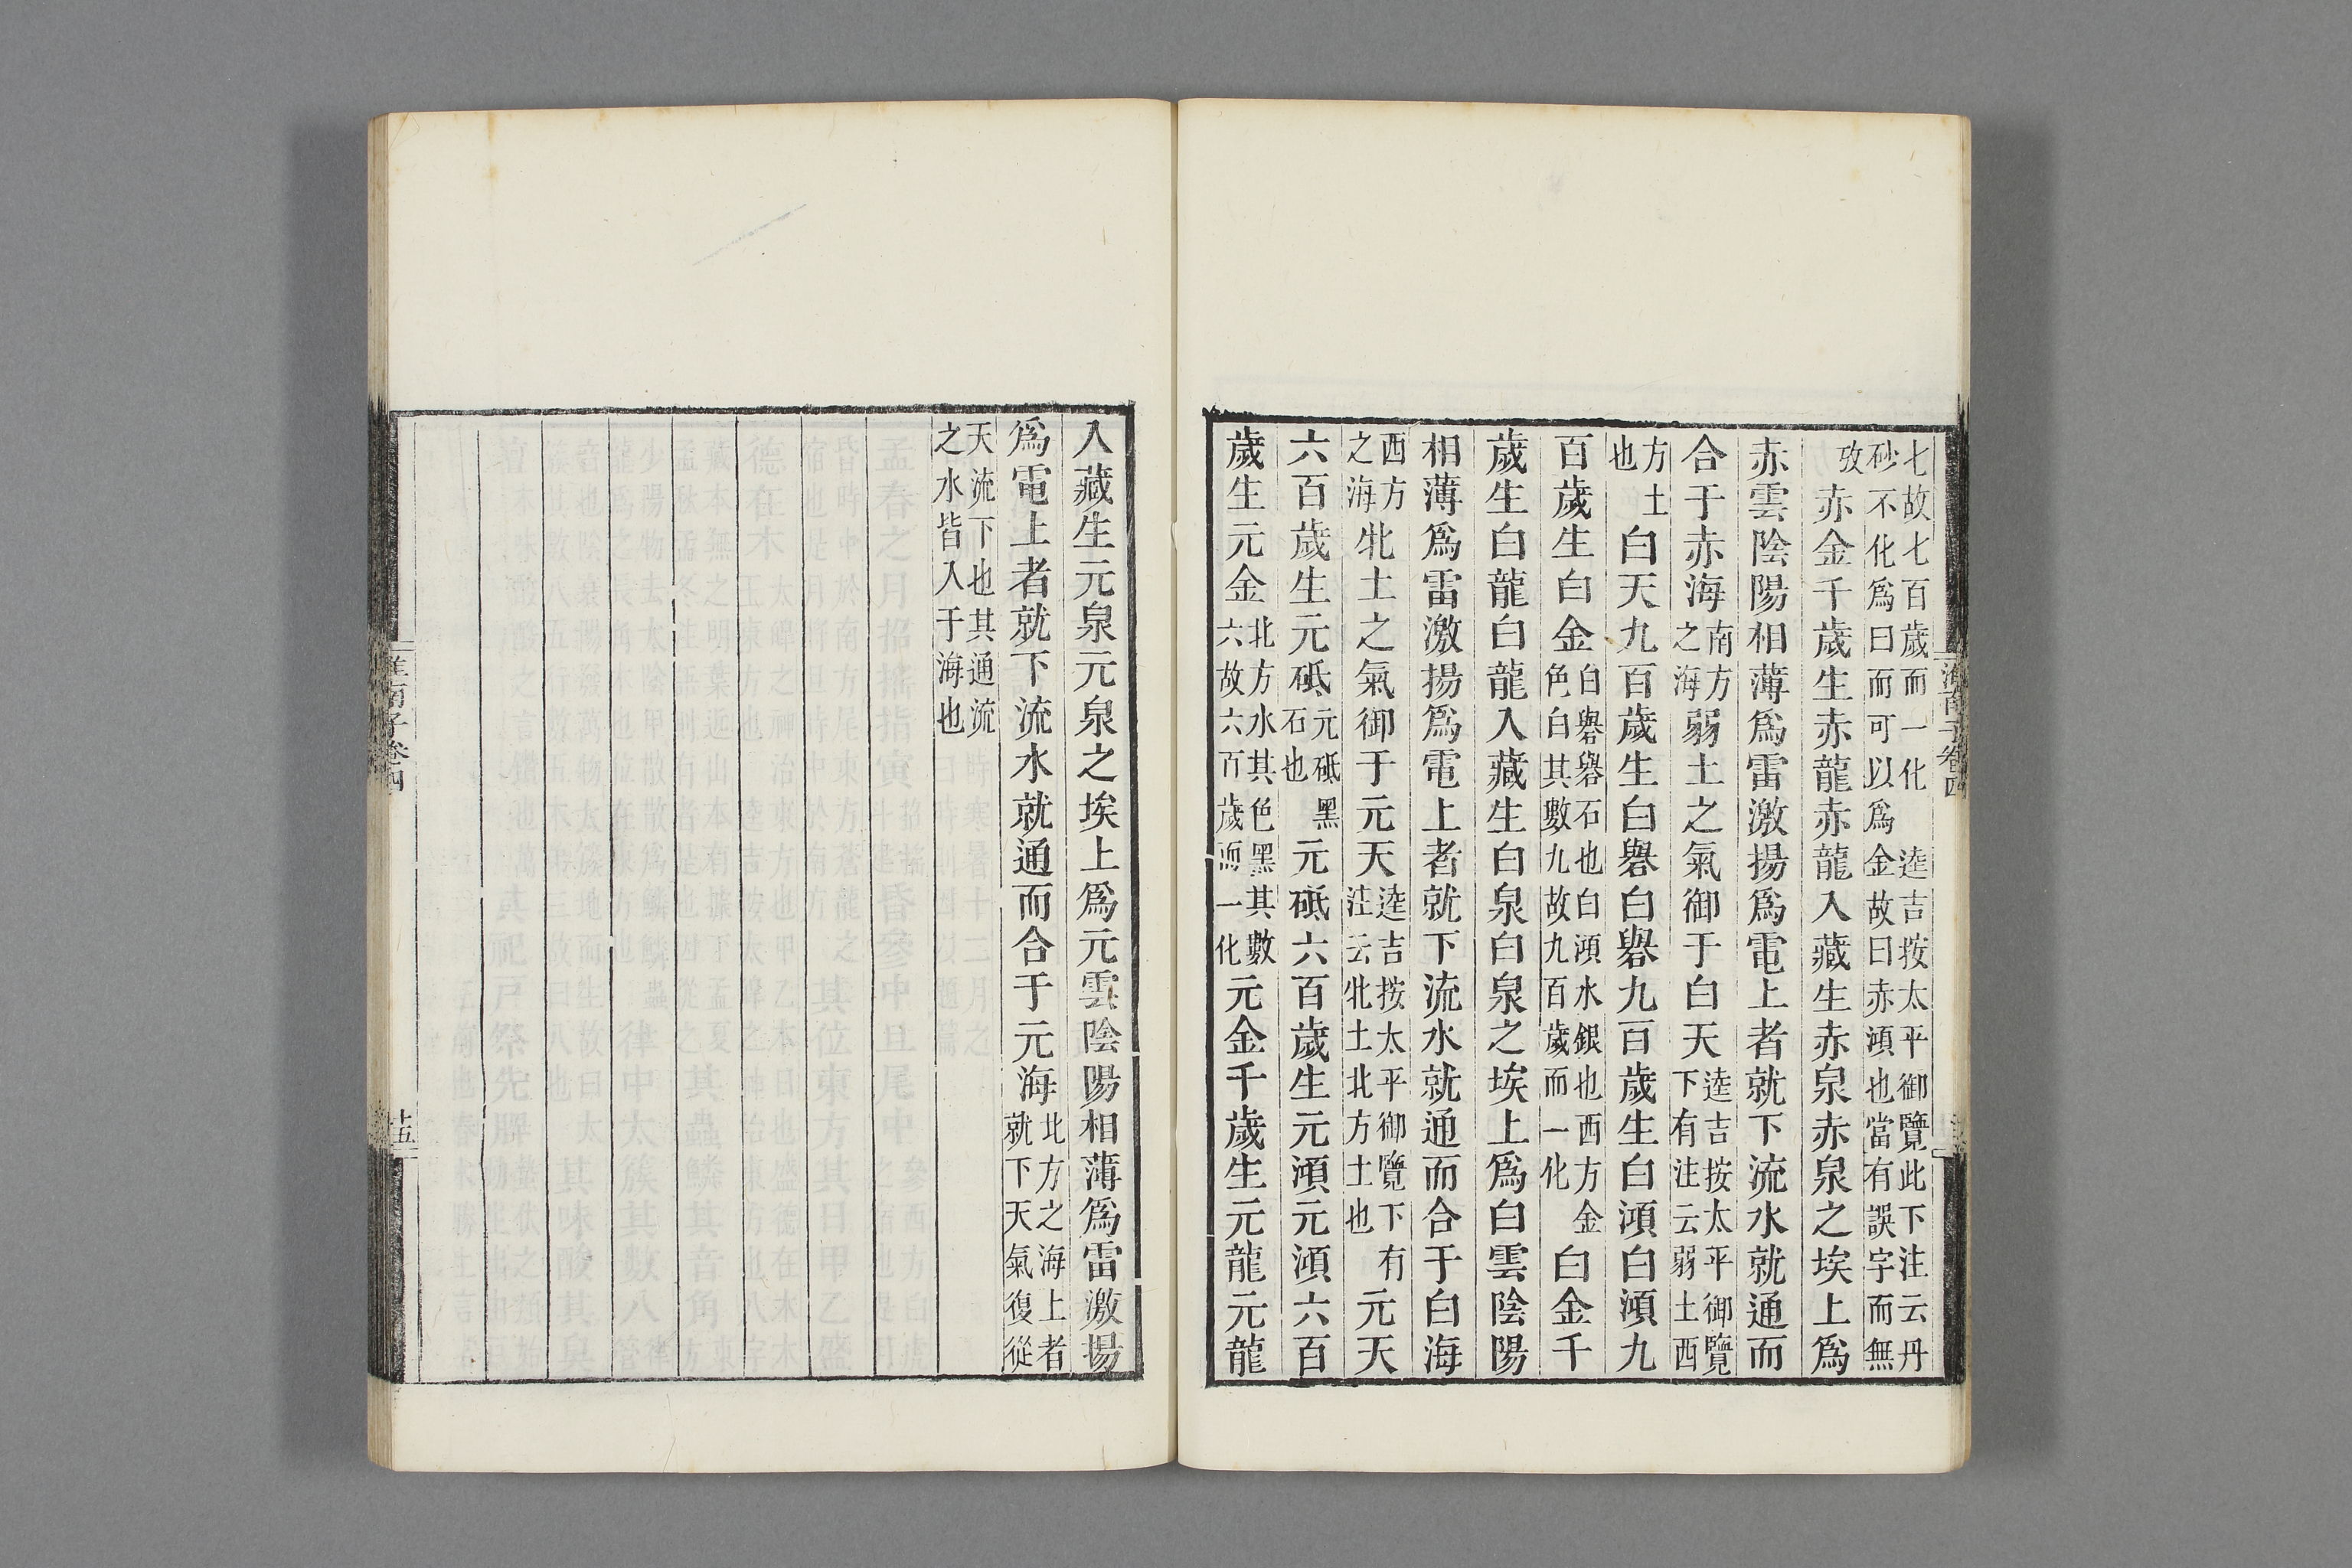 七故七百歲而一化　逵吉按太平御覽此下注云丹
砂不化爲日而可以爲金故曰赤澒也當有誤字而無
攷赤金千歲生赤龍赤龍入藏生赤泉赤泉之埃上爲
赤雲陰陽相薄爲雷激揚爲電上者就下流水就通而
合于赤海南方之海弱土之氣御于白天逵吉按太平御覽下有注云弱土西
方土也白天九百歲生白礜白礜九百歲生白澒白澒九
百歲生白金白礜礜石也白澒水銀也西方金色白其數九故九百歲而一化白金千
歲生白龍白龍入藏生白泉白泉之埃上爲白雲陰陽
相薄爲雷激揚爲電上者就下流水就通而合于白海
西方之海牝土之氣御于元天逵吉按太平御覽下有注云牝土北方土也元天
六百歲生元砥元砥黑石也元砥六百歲生元澒元澒六百
歲生元金北方水其色黑其數六故六百歲而一化元金千歲生元龍元龍
入藏生元泉元泉之埃上爲元雲陰陽相薄爲雷激揚
爲電上者就下流水就通而合于元海北方之海上者就下天氣復從
天流下也其通流之水皆入于海也
淮南子卷四
十五